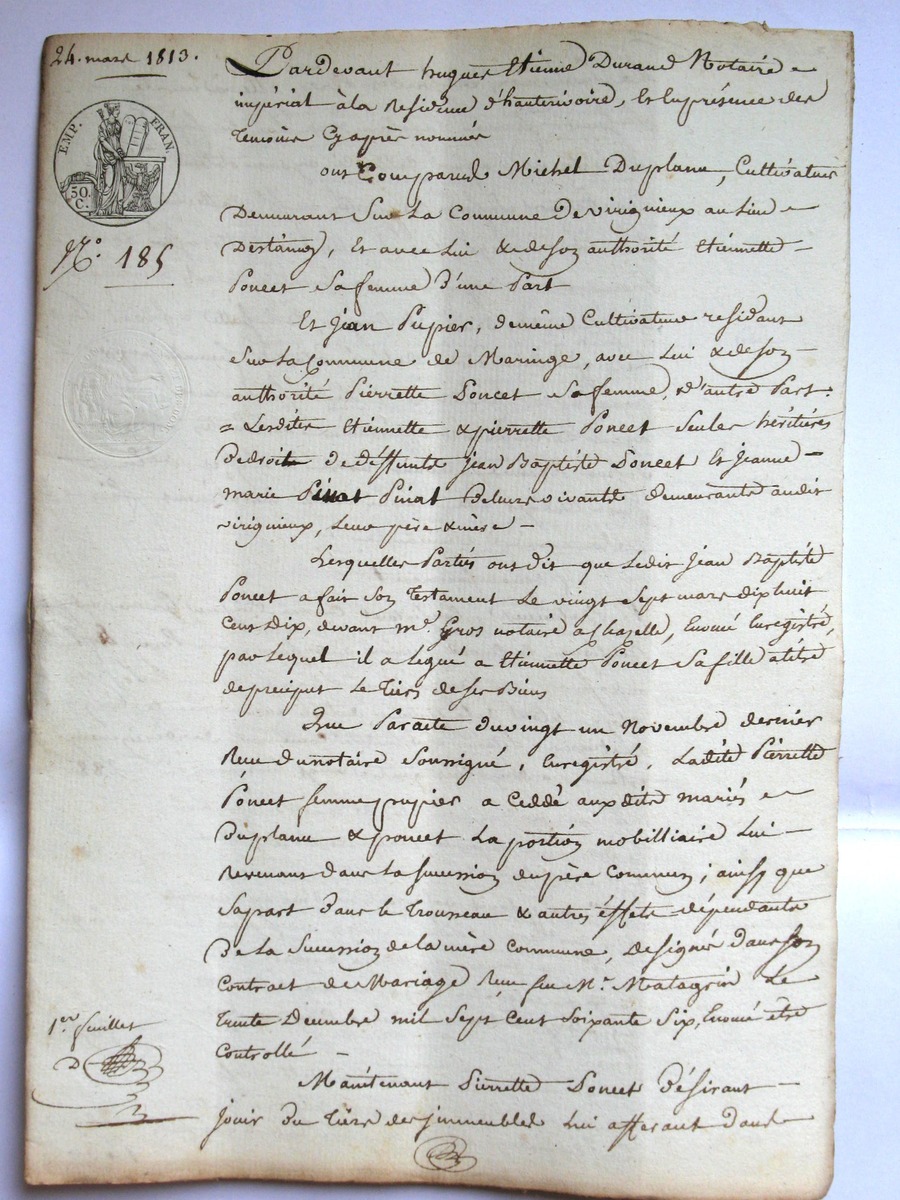 24. mars 1813.
EMP. FRAN.
50.
C.
N.º 185
Pardevant hugues Etienne Durand Notaire
impérial à la Residence d'hauterivoire, Et En présence des
temoins Cy après nommés
ont Comparus Michel Duplanu, Cultivateur
Demeurant Sur La Commune de virignieux au Lieu
, Et avec Lui & de Son authorité Etiennette
Poncet Sa femme d'une Part
Et Jean Pupier, de même Cultivateur residant
Sur La Commune de Maringe, avec Lui & de Son
authorité Pierrette Poncet Sa femme, d'autre Part.
= Lesdites Etiennette & pierrette Poncet Seules héritières
de droit de deffunts Jean Baptiste Poncet Et Jeanne
marie Pinat de Leurs vivants demeurants audit
virignieux, Leur père & mère
Lesquelles Parties ont dit que Ledit Jean Baptiste
Poncet a fait Son Testament Le vingt Sept mars dix huit
Cent Dix, devant m.e Gros notaire a Chazelle, Enoncé Enregistré,
par Lequel il a Legué a Etiennette Poncet Sa fille a titre
de preciput Le Tiers de Ses Biens
Que Par acte du vingt un Novembre dernier
Reçu du notaire Soussigné, Enregistré, Ladite Pierrette
Poncet femme pupier a Ceddé aux dits mariés
Duplanu & poncet La portion mobilliaire Lui
Revenant dans La Sucession du père Commun ; ainsy que
Sa part dans le Trousseau & autres éffets dépendants
De La Sucession de La mère Commune, designés dans Son
Contract de Mariage Reçu feu M.e Matagrin Le
Trente Decembre mil Sept Cent Soixante Six, Enoncé etre
Controllé
Maintenant Pierrette Poncet Désirant
jouir du Tiers des jmmeubles Lui afferant dans
1.er feuillet
D